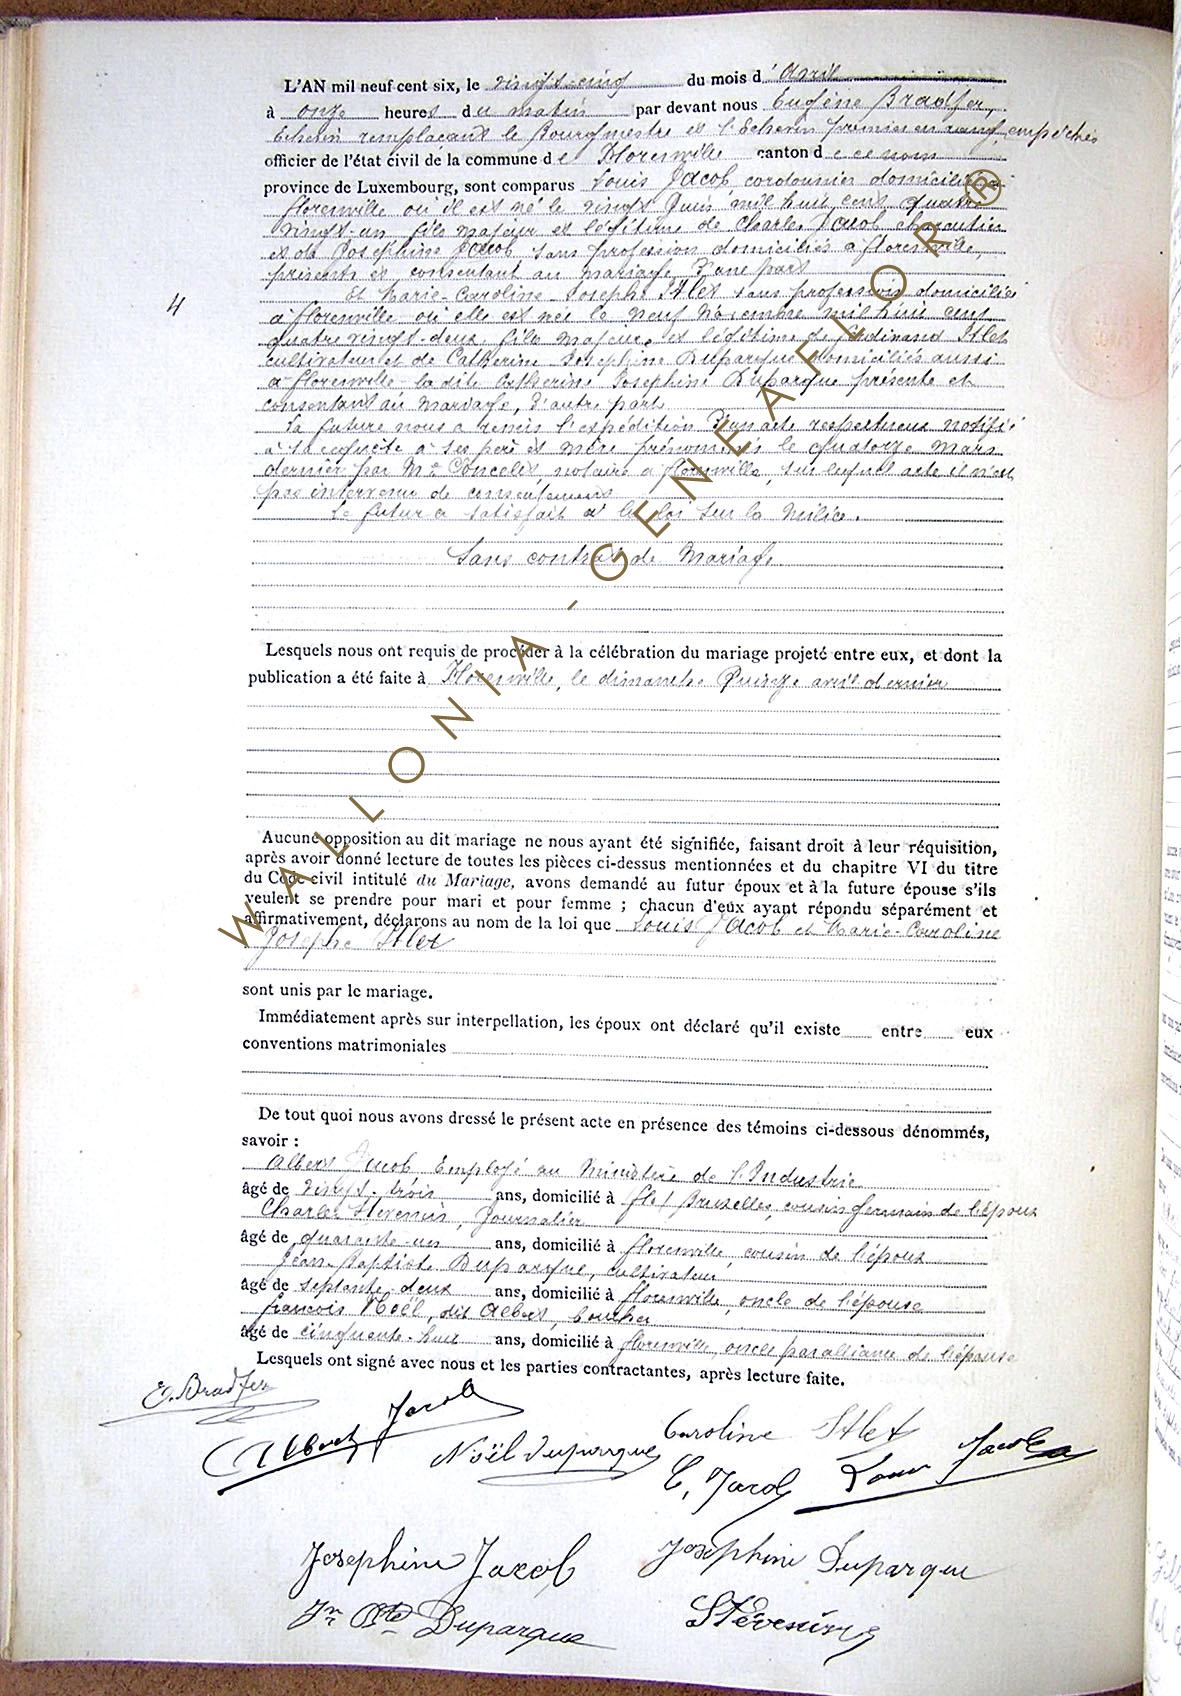 L'AN mil neuf cent six, le vingt-cinq du mois d'Avril
à onze heures du matin par devant nous Eugène Bradfer,
Echevin remplaçant le Bourgmestre et l'Echevin premier en rang, empêchés
officier de l'état civil de la commune de Florenville canton de ce nom
province de Luxembourg, sont comparus Louis Jacob, cordonnier domicilié à
florenville où il est né le vingt Juin mil huit cent quatre
vingt-un fils majeur et légitime de Charles Jacob
et de Joséphine Jacob sans profession domiciliés à florenville,
présents et consentant au mariage, d'une part
4
Et Marie-Caroline-Josephe Stlet sans profession domiciliée
à florenville où elle est née le neuf Novembre mil huit cent
quatre vingt-deux fille majeure et légitime de ferdinand Stlet
cultivateur et de Catherine Joséphine Duparque domiciliés aussi
à florenville la dite Catherine Joséphine Duparque présente et
consentant au mariage, d'autre part
La future nous a remis l'expédition d'un acte respectueux notifié
à sa requête à ses père et mère prénommés le quatorze mars
dernier par Me notaire à florenville, sur lequel acte il n'est
pas intervenu de consentement
Le futur a satisfait à la loi sur la milice.
Sans contrat de Mariage
Lesquels nous ont requis de procéder à la célébration du mariage projeté entre eux, et dont la
publication a été faite à Florenville, le dimanche Quinze avril dernier
Aucune opposition au dit mariage ne nous ayant été signifiée, faisant droit à leur réquisition,
après avoir donné lecture de toutes les pièces ci-dessus mentionnées et du chapitre VI du titre
du Code civil intitulé du Mariage, avons demandé au futur époux et à la future épouse s'ils
veulent se prendre pour mari et pour femme ; chacun d'eux ayant répondu séparément et
affirmativement, déclarons au nom de la loi que Louis Jacob et Marie-Caroline
Josephe Stlet
sont unis par le mariage.
Immédiatement après sur interpellation, les époux ont déclaré qu'il existe entre eux
conventions matrimoniales
De tout quoi nous avons dressé le présent acte en présence des témoins ci-dessous dénommés,
savoir :
Albert Jacob Employé au Ministère de l'Industrie
âgé de vingt-trois ans, domicilié à Bruxelles, cousin germain de l'époux
Charles Stévenin, Journalier
âgé de quarante-un ans, domicilié à florenville, cousin de l'époux
Jean-Baptiste Duparque, cultivateur
âgé de septante-deux ans, domicilié à florenville, oncle de l'épouse
françois Noël, dit Albert, boucher
âgé de cinquante-huit ans, domicilié à florenville, oncle par alliance de l'épouse
Lesquels ont signé avec nous et les parties contractantes, après lecture faite.
E. Bradfer
Albert Jacob
Noël Duparque
Caroline Stlet
C. Jacob
Louis Jacob
Joséphine Jacob
Joséphine Duparque
Jn Bte Duparque
Stévenin
WALLONIA - GENEAFLOR ®